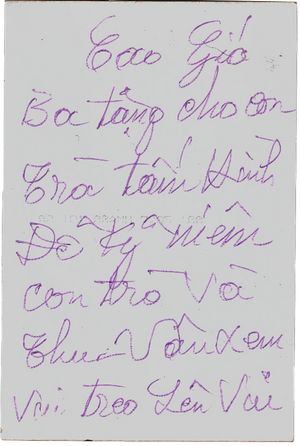 Gió
Ba tặng cho con
Trà tấm Hình
Để Kỹ niêm
con trà Và
Thu Vân xem
Vui treo Lên Vui